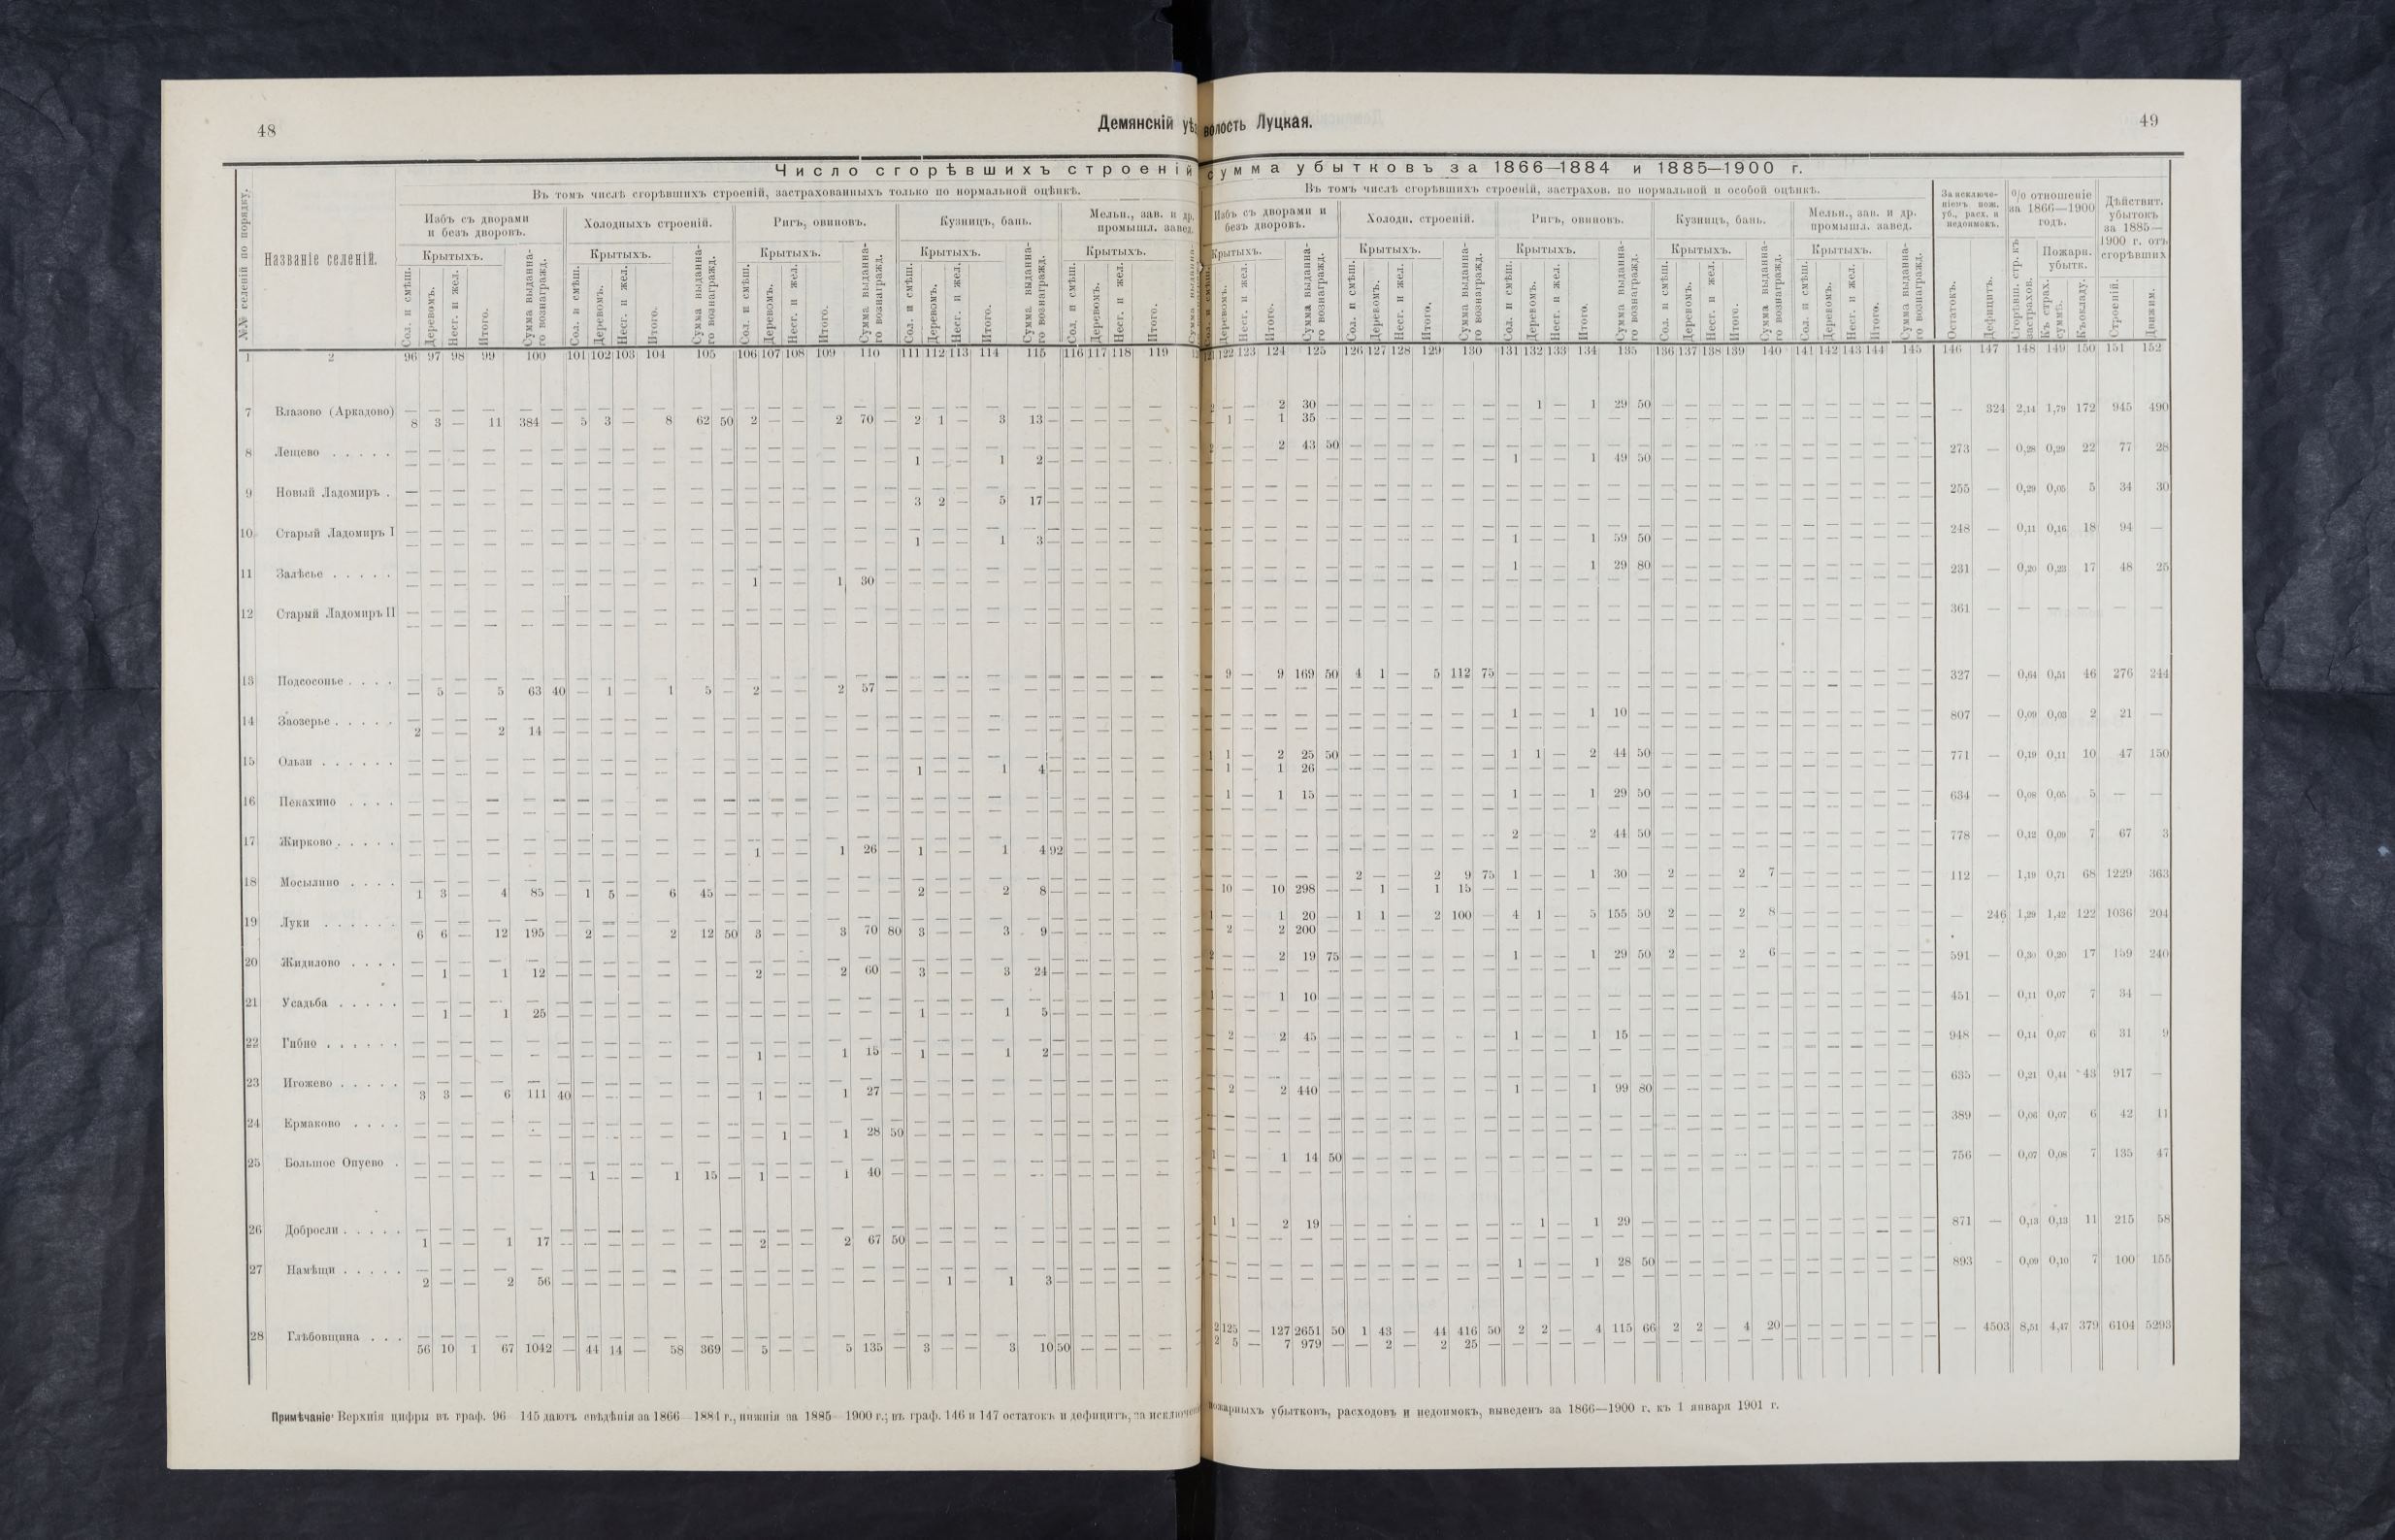 48
Демянскій
волость Луцкая.
49
Число сгорѣвшихъ строеній
сумма убытковъ за 1866—1884 и 1885—1900 г.
№№ селеній по порядку.
Названіе селеній.
Въ томъ числѣ сгорѣвшихъ строеній, застрахованныхъ только по нормальной оцѣнкѣ.
Въ томъ числѣ сгорѣвшихъ строеній, застрахов. по нормальной и особой оцѣнкѣ.
Избъ съ дворами и безъ дворовъ.
Холодныхъ строеній.
Ригъ, овиновъ.
Кузницъ, бань.
Мельн., зав. и др. промышл. завед.
Избъ съ дворами и безъ дворовъ.
Холодн. строеній.
Ригъ, овиновъ.
Кузницъ, бань.
Мельн., зав. и др. промышл. завед.
За исключеніемъ пож. уб., расх. и недоимокъ.
% отношеніе за 1866—1900 годъ.
Дѣйствит. убытокъ за 1885—1900 г. отъ сгорѣвшихъ
Крытыхъ. Крытыхъ. Крытыхъ. Крытыхъ. Крытыхъ. Крытыхъ. Крытыхъ. Крытыхъ. Крытыхъ. Крытыхъ.
Сол. и смѣш. Деревомъ. Несг. и жел. Итого. Сумма выданнаго вознагражд.
Остатокъ. Дефицитъ. Сгорѣвш. стр. къ застрахов. Пожарн. убытк. Къ страх. суммѣ. Къ окладу. Строеній. Движим.
1 2 96 97 98 99 100 101 102 103 104 105 106 107 108 109 110 111 112 113 114 115 116 117 118 119 122 123 124 125 126 127 128 129 130 131 132 133 134 135 136 137 138 139 140 141 142 143 144 145 146 147 148 149 150 151 152
7 Влазово (Аркадово) — — 2 30 — 1 — 1 29 50 — 324 2,14 1,79 172 945 490
8 3 — 11 384 — 5 3 — 8 62 50 2 — — 2 70 — 2 1 — 3 13 — 1 — 1 35
8 Лещево — — 2 43 50 — 273 — 0,28 0,29 22 77 28
1 — — 1 2 — 1 — — 1 49 50
9 Новый Ладомиръ — 255 — 0,29 0,05 5 34 30
3 2 — 5 17 —
10 Старый Ладомиръ I — 248 — 0,11 0,16 18 94 —
1 — — 1 3 — 1 — — 1 59 50
11 Залѣсье — 1 — — 1 29 80 — 231 — 0,20 0,23 17 48 25
1 — — 1 30 —
12 Старый Ладомиръ II — 361 — — — — — —
13 Подсосонье — 9 — 9 169 50 4 1 — 5 112 75 — 327 — 0,64 0,51 46 276 244
— 5 — 5 63 40 — 1 — 1 5 — 2 — — 2 57 —
14 Заозерье — 1 — — 1 10 — 807 — 0,09 0,03 2 21 —
2 — — 2 14 —
15 Ользи — 1 1 — 2 25 50 — 1 1 — 2 44 50 — 771 — 0,19 0,11 10 47 150
1 — — 1 4 — 1 — 1 26 —
16 Пекахино — 1 — 1 15 — 1 — — 1 29 50 — 634 — 0,08 0,05 5 — —
17 Жирково — 2 — — 2 44 50 — 778 — 0,12 0,09 7 67 3
1 — — 1 26 — 1 — — 1 4 92 —
18 Мосылино — 2 — — 2 9 75 1 — — 1 30 — 2 — — 2 7 — 112 — 1,19 0,71 68 1229 363
1 3 — 4 85 — 1 5 — 6 45 — 2 — — 2 8 — 10 — 10 298 — — 1 — 1 15 —
19 Луки — 1 — — 1 20 — 1 1 — 2 100 — 4 1 — 5 155 50 2 — — 2 8 — — 246 1,29 1,42 122 1036 204
6 6 — 12 195 — 2 — — 2 12 50 3 — — 3 70 80 3 — — 3 9 — 2 — 2 200 —
20 Жидилово — 2 — — 2 19 75 — 1 — — 1 29 50 2 — — 2 6 — 591 — 0,30 0,20 17 159 240
— 1 — 1 12 — 2 — — 2 60 — 3 — — 3 24 —
21 Усадьба — 1 — — 1 10 — 451 — 0,11 0,07 7 34 —
— 1 — 1 25 — 1 — — 1 5 —
22 Гибно — 2 — 2 45 — 1 — — 1 15 — 948 — 0,14 0,07 6 31 9
1 — — 1 15 — 1 — — 1 2 —
23 Игожево — 635 — 0,21 0,44 43 917 —
3 3 — 6 111 40 — 1 — — 1 27 — 2 — 2 440 — 1 — — 1 99 80
24 Ермаково — 389 — 0,06 0,07 6 42 11
— 1 — 1 28 50 —
25 Большое Опуево — 1 — — 1 14 50 — 756 — 0,07 0,08 7 135 47
1 — — 1 15 — 1 — — 1 40 —
26 Добросли — 1 1 — 2 19 — 1 — 1 29 — 871 — 0,13 0,13 11 215 58
1 — — 1 17 — 2 — — 2 67 50 —
27 Намѣщи — 1 — — 1 28 50 — 893 — 0,09 0,10 7 100 155
2 — — 2 56 — 1 — 1 3 —
28 Глѣбовщина — 2 125 — 127 2651 50 1 43 — 44 416 50 2 2 — 4 115 66 2 2 — 4 20 — — 4503 8,51 4,47 379 6104 5293
56 10 1 67 1042 — 44 14 — 58 369 — 5 — — 5 135 — 3 — — 3 10 50 — 2 5 — 7 979 — — 2 — 2 25 —
Примѣчаніе: Верхнія цифры въ граф. 96—145 даютъ свѣдѣнія за 1866—1884 г., нижнія за 1885—1900 г.; въ граф. 146 и 147 остатокъ и дефицитъ, за
пожарныхъ убытковъ, расходовъ и недоимокъ, выведенъ за 1866—1900 г. къ 1 января 1901 г.